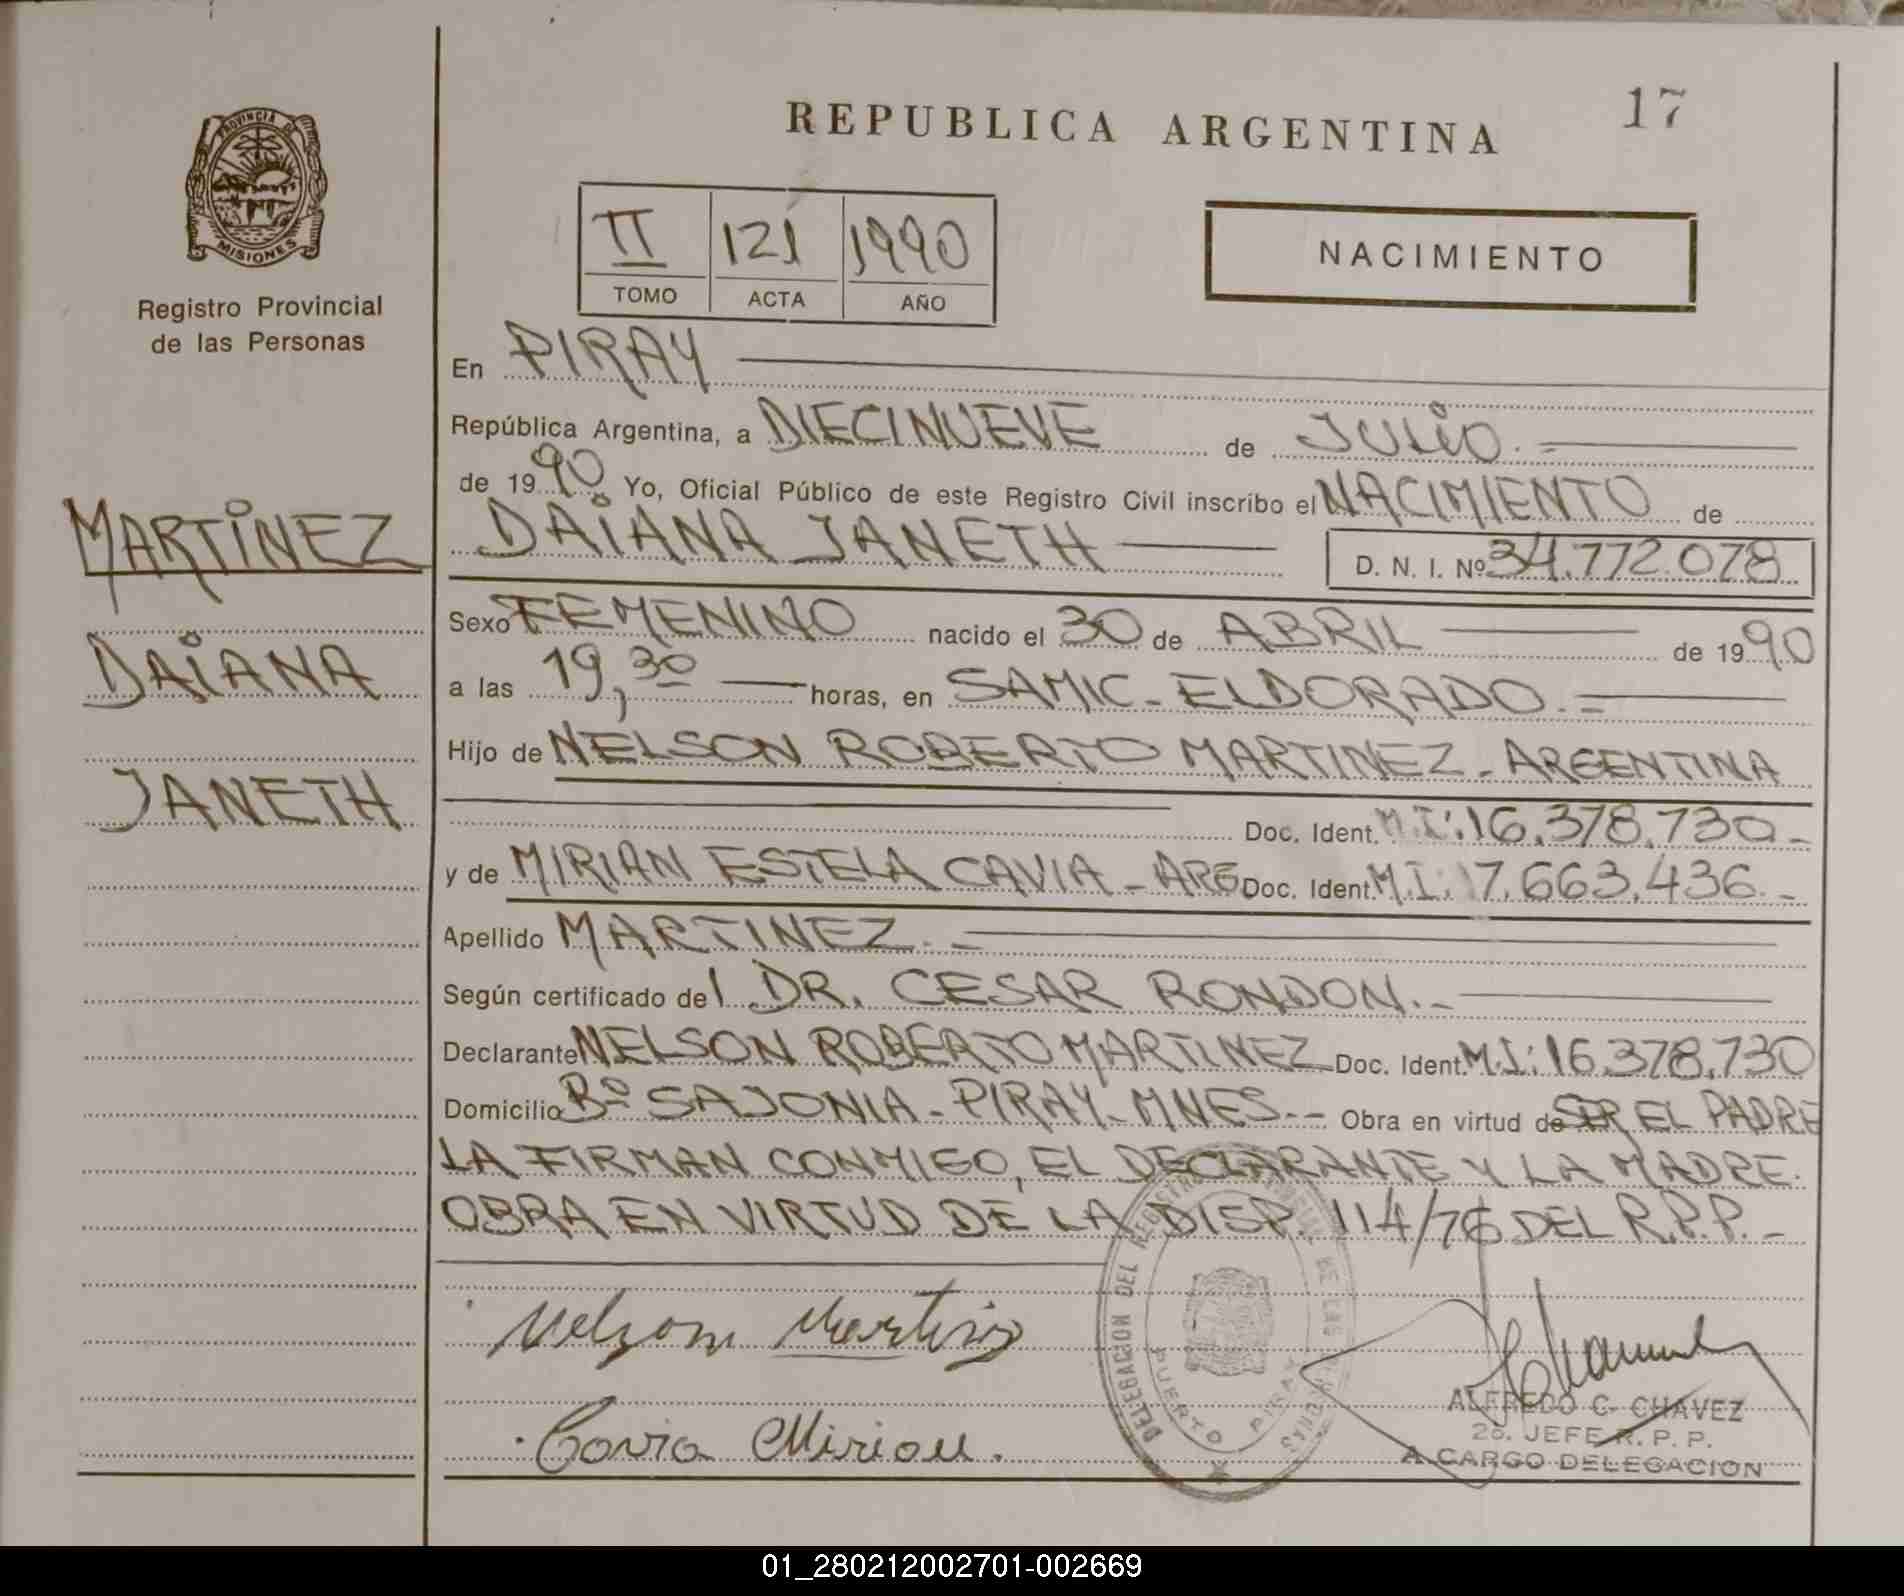 REPUBLICA ARGENTINA
17
PROVINCIA DE
MISIONES
Registro Provincial
de las Personas
II 121 1990
TOMO ACTA AÑO
NACIMIENTO
MARTINEZ
DAIANA
JANETH
En PIRAY
República Argentina, a DIECINUEVE de JULIO.=
de 1990 Yo, Oficial Público de este Registro Civil inscribo el NACIMIENTO de
DAIANA JANETH D. N. I. Nº 34.772.078
Sexo FEMENINO nacido el 30 de ABRIL de 1990
a las 19,30 horas, en SAMIC-ELDORADO.=
Hijo de NELSON ROBERTO MARTINEZ-ARGENTINA
Doc. Ident. M.I:16.378.730-
y de MIRIAN ESTELA CAVIA-ARG Doc. Ident. M.I:17.663.436.-
Apellido MARTINEZ.-
Según certificado del DR. CESAR RONDON.-
Declarante NELSON ROBERTO MARTINEZ Doc. Ident. M.I:16.378.730
Domicilio Bº SAJONIA-PIRAY-MNES.- Obra en virtud de SER EL PADRE
LA FIRMAN CONMIGO, EL DECLARANTE Y LA MADRE.
OBRA EN VIRTUD DE LA DISP. 114/76 DEL R.P.P.-
Nelson Martinez
Cavia Mirian.
DELEGACION DEL REGISTRO PROVINCIAL DE LAS PERSONAS
PUERTO PIRAY
ALFREDO C. CHAVEZ
2o. JEFE R. P. P.
A CARGO DELEGACION
01_280212002701-002669